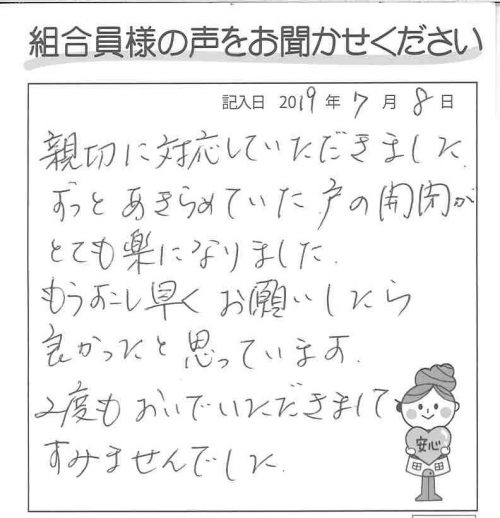 組合員様の声をお聞かせください
記入日 2019年7月8日
親切に対応していただきました.
ずっとあきらめていた戸の開閉が
とても楽になりました.
もうすこし早くお願いしたら
良かったと思っています.
2度もおいでいただきまして
すみませんでした.
安心